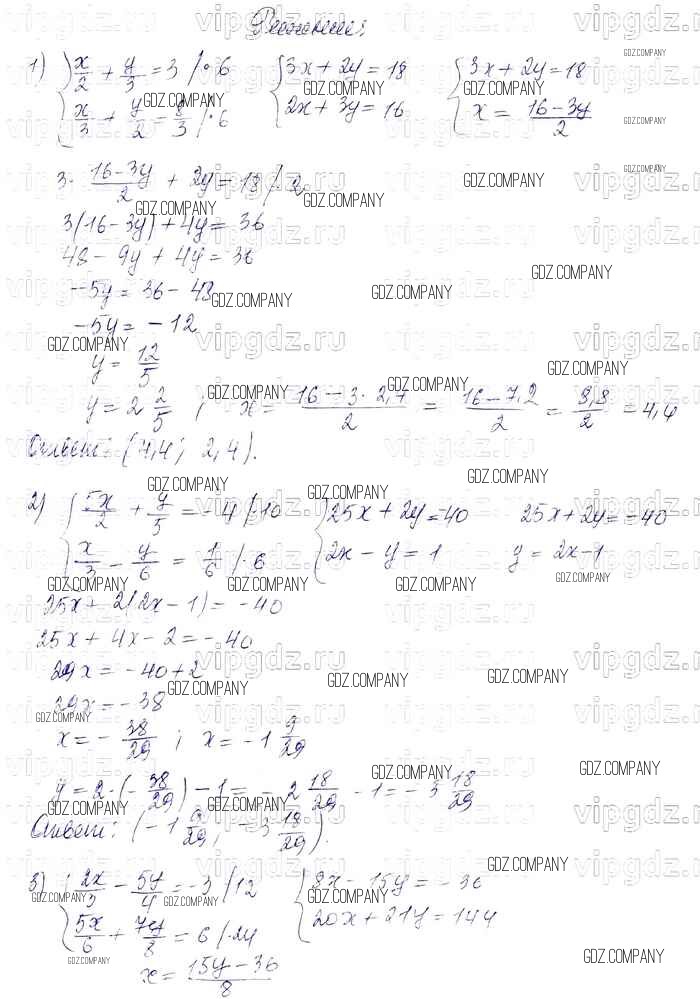 Решение:
1) { x/2 + y/3 = 3 /·6 { 3x + 2y = 18 { 3x + 2y = 18
x/3 + y/2 = 8/3 /·6 2x + 3y = 16 x = (16-3y)/2
3 · (16-3y)/2 + 2y = 18 /·2
3(16-3y) + 4y = 36
48 - 9y + 4y = 36
-5y = 36 - 48
-5y = -12
y = 12/5
y = 2 2/5 ; x = (16 - 3 · 2,4)/2 = (16 - 7,2)/2 = 8,8/2 = 4,4
Ответ: (4,4; 2,4).
2) { 5x/2 + y/5 = -4 /·10 { 25x + 2y = -40 25x + 2y = -40
x/3 - y/6 = 1/6 /·6 2x - y = 1 y = 2x - 1
25x + 2(2x - 1) = -40
25x + 4x - 2 = -40
29x = -40 + 2
29x = -38
x = - 38/29 ; x = -1 9/29
y = 2 · (- 38/29) - 1 = -2 18/29 - 1 = -3 18/29
Ответ: (-1 9/29; -3 18/29).
3) { 2x/3 - 5y/4 = -3 /12 { 8x - 15y = -36
5x/6 + 7y/8 = 6 /·24 20x + 21y = 144
x = (15y - 36)/8
vipgdz.ru
GDZ.COMPANY